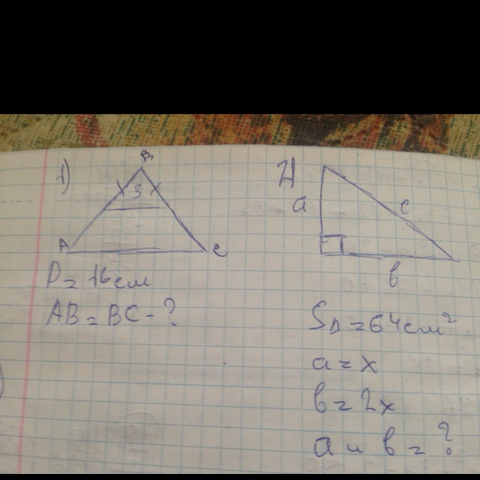 1)
B
x 3 x
A
C
P = 16 см
AB = BC - ?
2)
a
c
b
S△ = 64 см²
a = x
b = 2x
a и b = ?